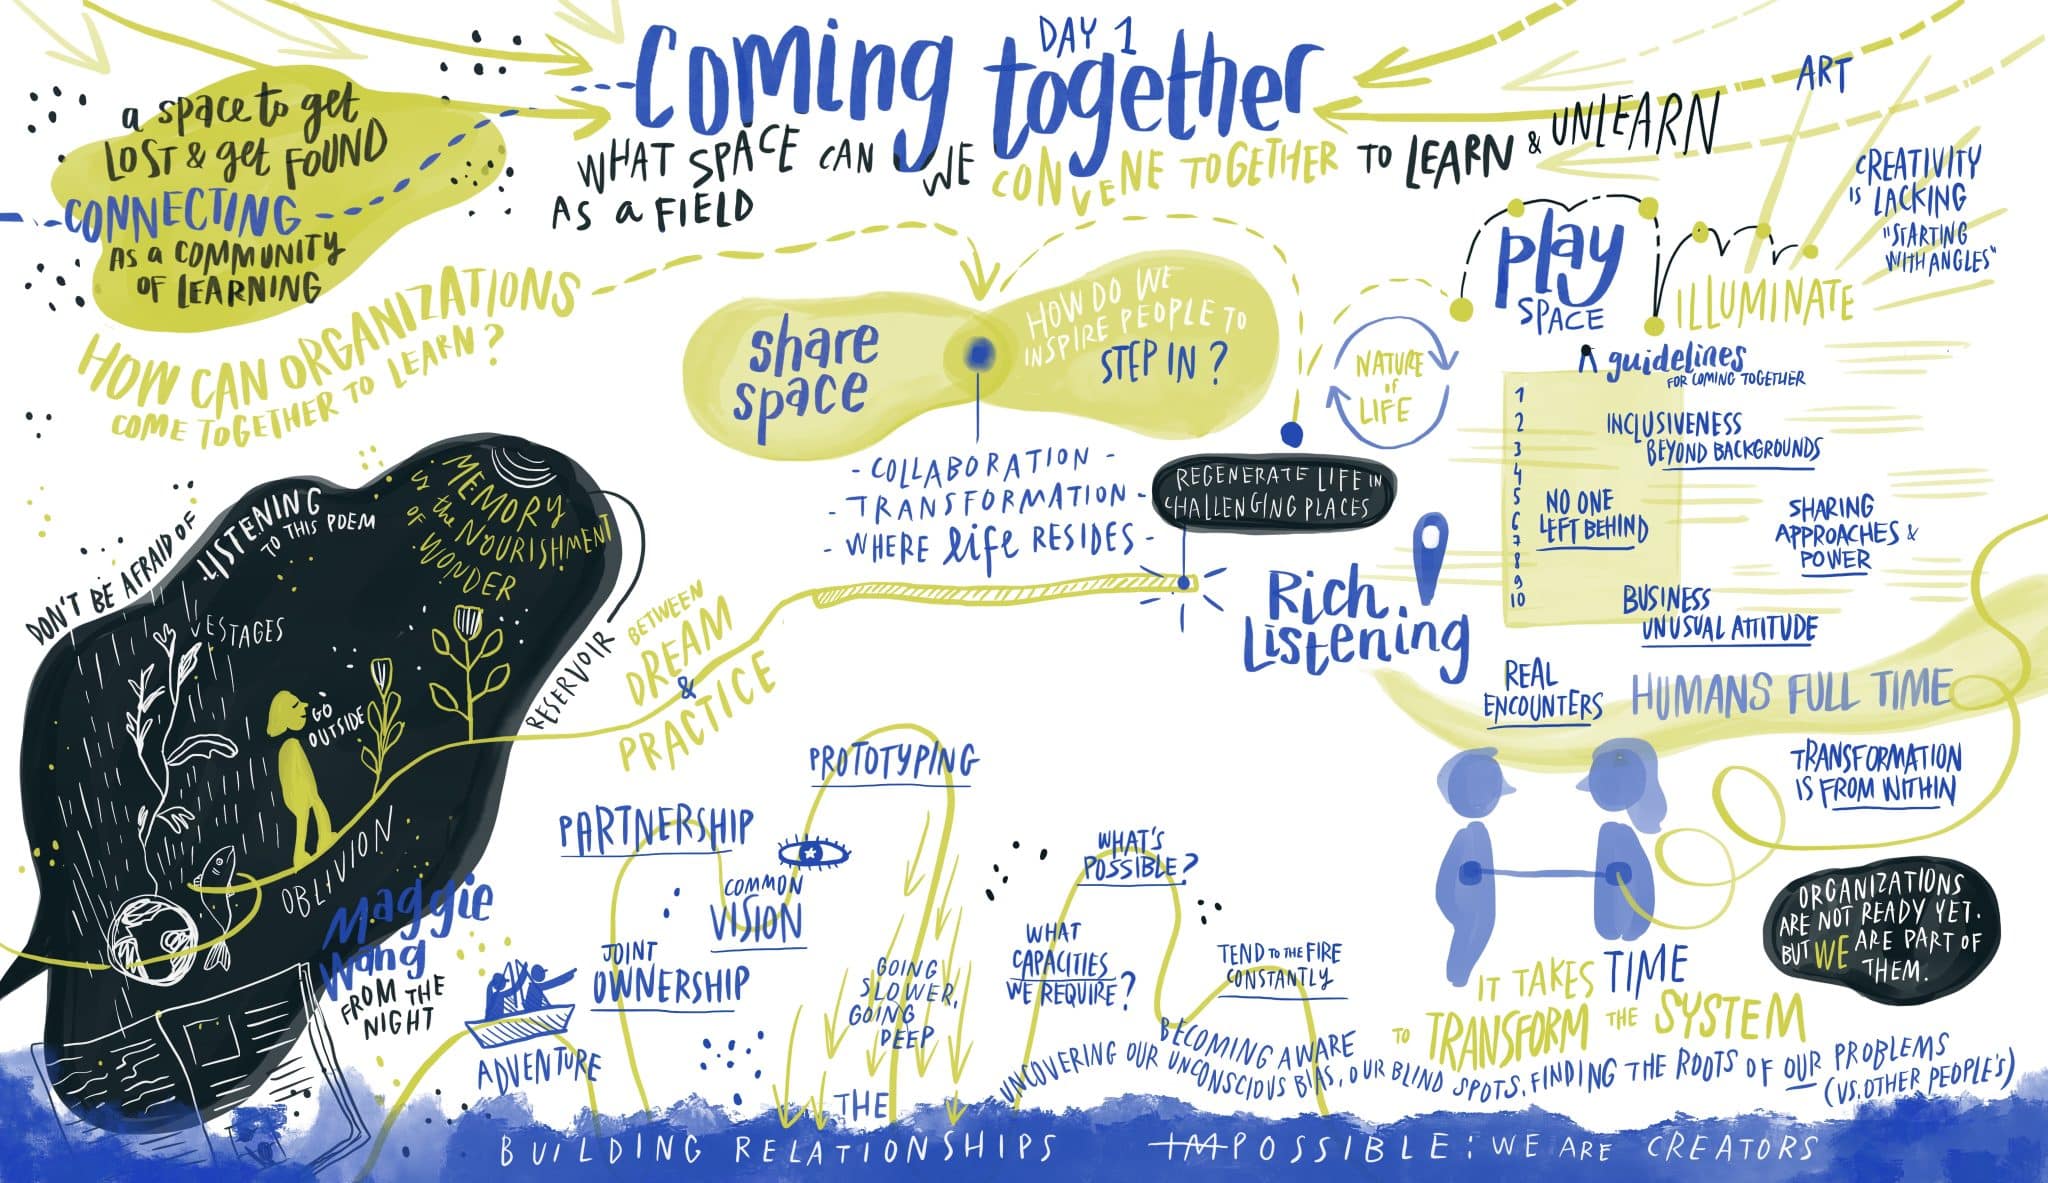 DAY 1
Coming together
WHAT SPACE CAN WE CONVENE TOGETHER TO LEARN & UNLEARN
AS a FIELD
a space to get
LOST & get FOUND
CONNECTING
AS a COMMUNITY
OF LEARNING
HOW CAN ORGANIZATIONS
COME TOGETHER TO LEARN?
share
space
HOW DO WE
INSPIRE PEOPLE TO
STEP IN?
- COLLABORATION -
- TRANSFORMATION -
- WHERE life RESIDES -
NATURE
OF
LIFE
REGENERATE LIFE IN
CHALLENGING PLACES
play
SPACE
ILLUMINATE
ART
CREATIVITY
IS LACKING
"STARTING
WITH ANGLES"
guidelines
FOR COMING TOGETHER
1
2
3
4
5
6
7
8
9
10
INCLUSIVENESS
BEYOND BACKGROUNDS
NO ONE
LEFT BEHIND
SHARING
APPROACHES &
POWER
BUSINESS
UNUSUAL ATTITUDE
Rich
Listening
REAL
ENCOUNTERS
HUMANS FULL TIME
TRANSFORMATION
IS FROM WITHIN
ORGANIZATIONS
ARE NOT READY YET.
BUT WE ARE PART OF
THEM.
IT TAKES TIME
TO TRANSFORM THE SYSTEM
DON'T BE AFRAID OF
LISTENING
TO THIS POEM
MEMORY
IS the NOURISHMENT
OF WONDER
VESTAGES
GO
OUTSIDE
OBLIVION
RESERVOIR
Maggie
Wang
FROM THE
NIGHT
BETWEEN
DREAM
&
PRACTICE
PROTOTYPING
PARTNERSHIP
COMMON
VISION
JOINT
OWNERSHIP
ADVENTURE
GOING
SLOWER,
GOING
DEEP
WHAT'S
POSSIBLE?
WHAT
CAPACITIES
WE REQUIRE?
TEND TO THE FIRE
CONSTANTLY
BECOMING AWARE
UNCOVERING OUR UNCONSCIOUS BIAS, OUR BLIND SPOTS, FINDING THE ROOTS OF OUR PROBLEMS
(VS. OTHER PEOPLE'S)
THE
BUILDING RELATIONSHIPS
IMPOSSIBLE: WE ARE CREATORS